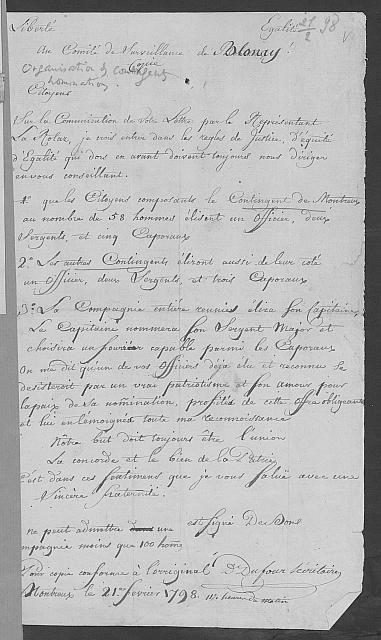 Liberté Egalité 21/2 98
Au Comité de Surveillance de Blonay !
Copie
Organisation du contingent
nomination.
Citoyens
Sur la Comunication de votre Lettre par le Représentant
La Molaz, je crois entrer dans les regles de Justice, d'équité
d'Egalité qui dors en avant doivent toujours nous diriger
en vous conseillant.
1° que les Citoyens composants le Contingent de Montreux
au nombre de 58 hommes élisent un Officier, deux
Sergents, et cinq Caporaux
2° Les autres Contingents éliront aussi de leur coté
un Officier, deux Sergents, et trois Caporaux
3° La Compagnie entiere reunie, élira son Capitaine
Le Capitaine nommera son Sergent Major et
choisira un fourier capable parmi les Caporaux
On me dit qu'un de vos Officiers déja élu et reconnu se
desisteroit par un vrai patriotisme et son amour pour
la paix de sa nomination, profités de cette offre obligeante
et lui en témoignés toute ma reconnoissance
Notre but doit toujours être l'union
La concorde et le bien de la Patrie
c'est dans ces sentimens que je vous salüe avec une
Sincère fraternité.
est signé De Bons
ne peut admettre une
mpagnie moins que 100 hom
Pour copie conforme à l'orriginal Dr Dufour Secrétaire
Montreux le 21me fevrier 1798. 11 1/2 heures du matin